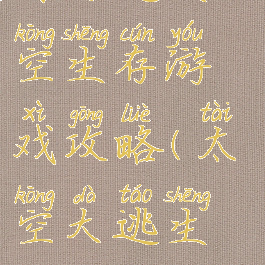 kōng shēng cún yóu
空生存游
xì gōng lüè tài
戏攻略(太
kōng dà táo shēng
空大逃生